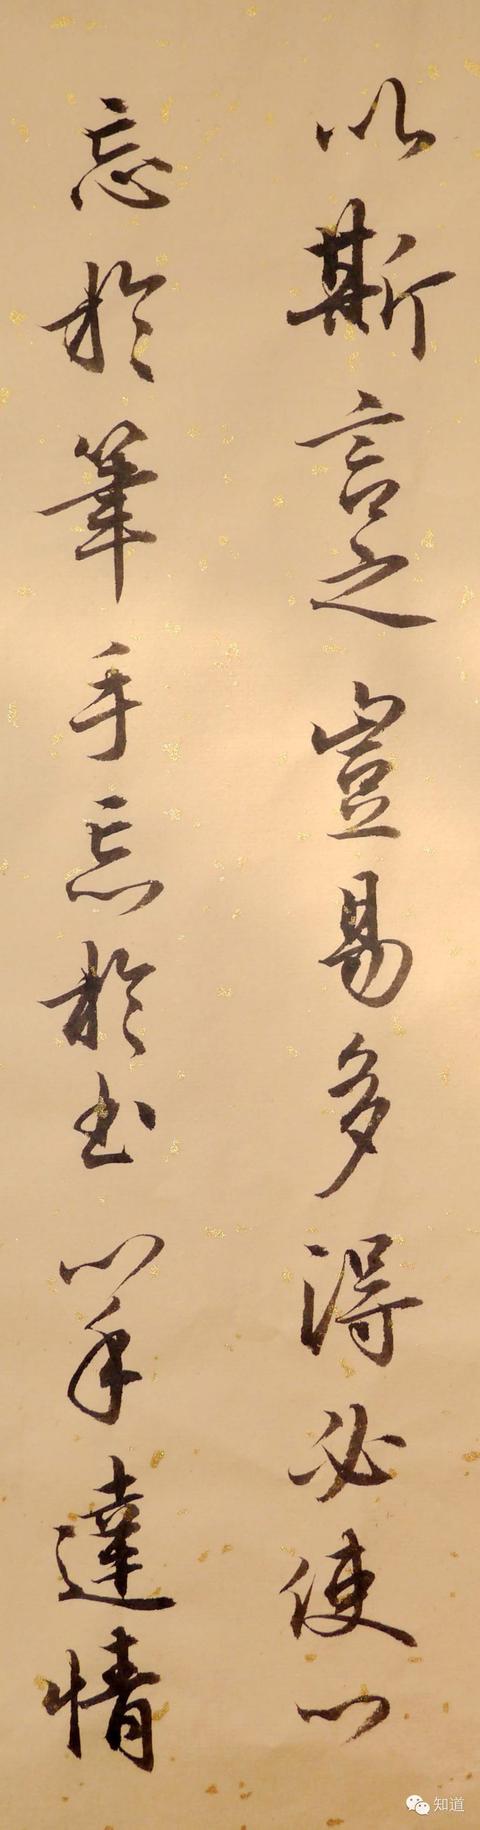 以斯言之豈易多得必使心
忘於筆手忘於書心手達情
知道